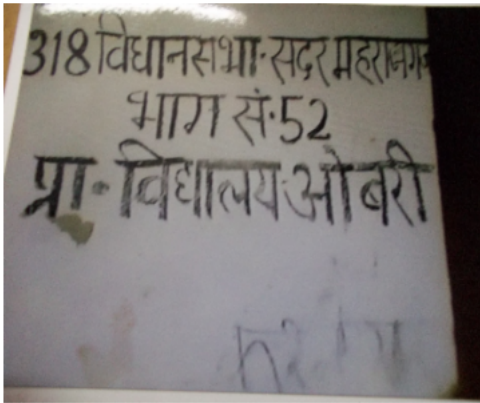 318 विधानसभा-सदर महराजगंज
भाग सं.52
प्रा॰ विद्यालय ओबरी